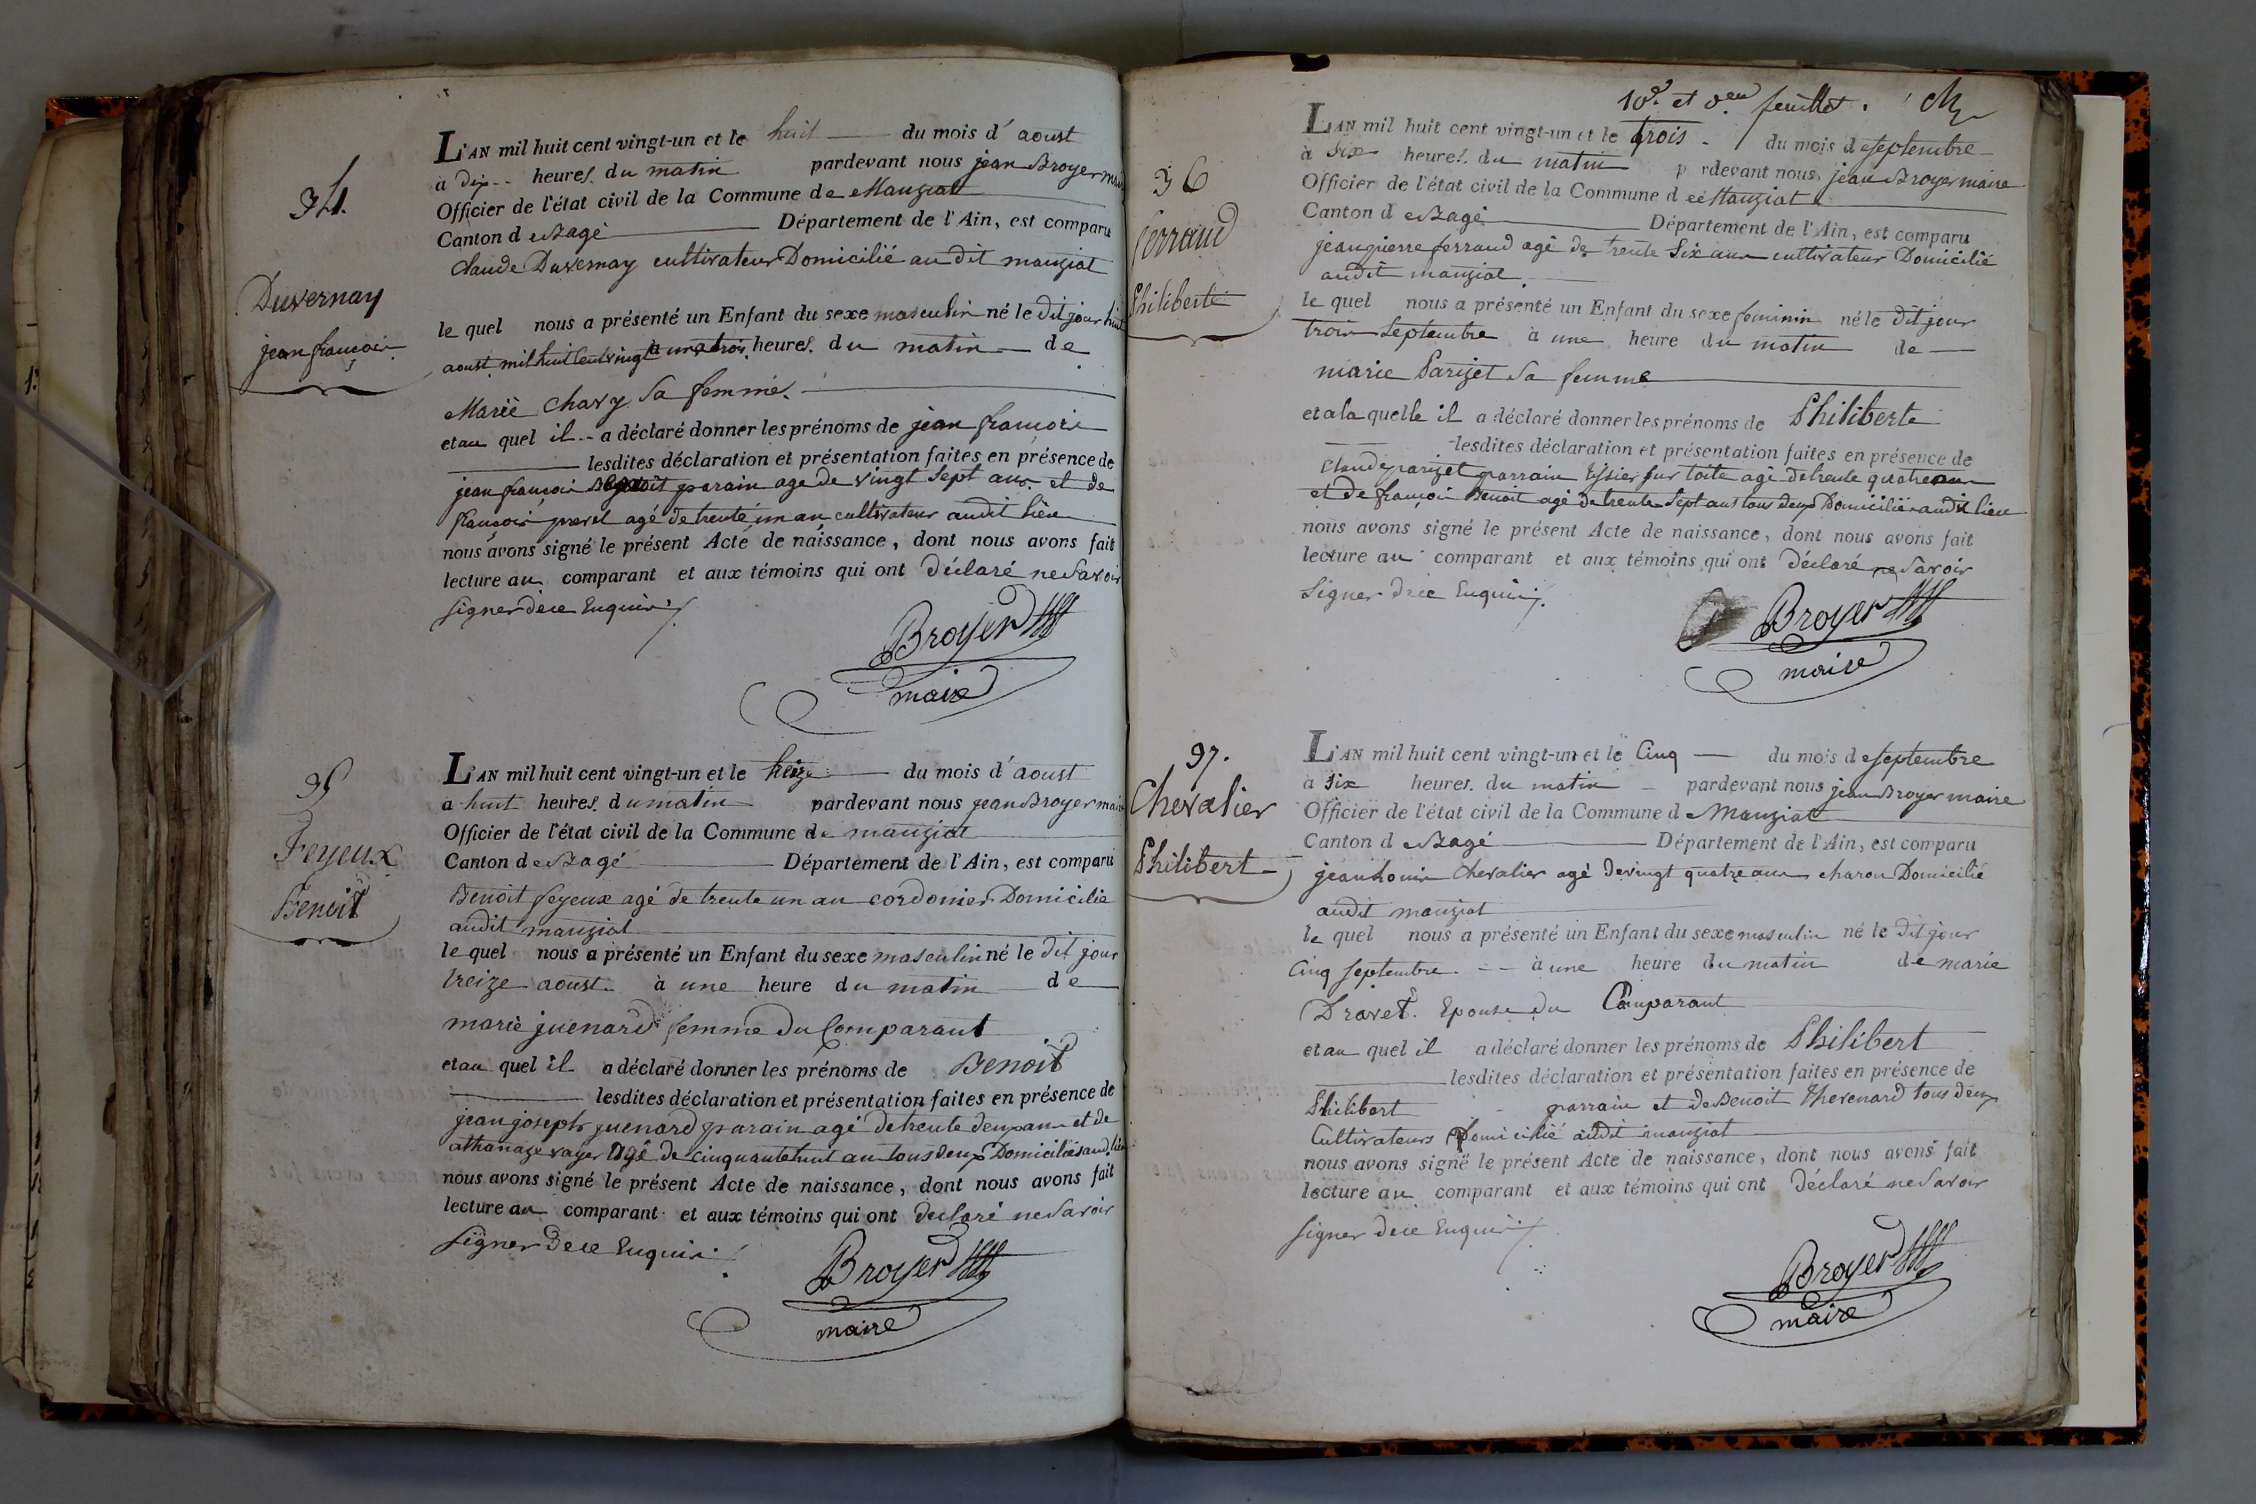 34.
Duvernay
jean françois
L'AN mil huit cent vingt-un et le huit du mois d'aoust
à dix heures du matin pardevant nous jean Broyer maire
Officier de l'état civil de la Commune de Manziat
Canton de Bagé Département de l'Ain, est comparu
Claude Duvernay cultivateur Domicilié au dit manziat
le quel nous a présenté un Enfant du sexe masculin né le dit jour huit
aoust mil huit cent vingt un à trois heures du matin de
Marie Chavy sa femme.
et au quel il a déclaré donner les prénoms de jean françois
lesdites déclaration et présentation faites en présence de
jean françois parain agé de vingt sept ans et de
françois prevel agé de trente un an cultivateur audit lieu
nous avons signé le présent Acte de naissance, dont nous avons fait
lecture au comparant et aux témoins qui ont déclaré ne savoir
signer de ce Enquis
Broyer
maire
35
Feyeux
Benoit
L'AN mil huit cent vingt-un et le treize du mois d'aoust
a huit heures du matin pardevant nous jean Broyer maire
Officier de l'état civil de la Commune de manziat
Canton de Bagé Département de l'Ain, est comparu
Benoit feyeux agé de trente un an cordonier Domicilié
audit manziat
le quel nous a présenté un Enfant du sexe masculin né le dit jour
treize aoust à une heure du matin de
marie juenard femme du Comparant
et au quel il a déclaré donner les prénoms de Benoit
lesdites déclaration et présentation faites en présence de
jean joseph juenard parain agé de trente deux ans et de
athanaze rayer agé de cinquante huit an tous deux Domiciliés aud. lieu
nous avons signé le présent Acte de naissance, dont nous avons fait
lecture au comparant et aux témoins qui ont déclaré ne savoir
signer de ce Enquis
Broyer
maire
10e et feuillet.
36
ferrand
Philiberte
L'AN mil huit cent vingt-un et le trois du mois de septembre
à six heures du matin p rdevant nous jean Broyer maire
Officier de l'état civil de la Commune de Manziat
Canton de Bagé Département de l'Ain, est comparu
jean pierre ferrand agé de trente six ans cultivateur Domicilié
audit manziat.
le quel nous a présenté un Enfant du sexe feminin né le dit jour
trois septembre à une heure du matin de
marie Parizet sa femme
et a la quelle il a déclaré donner les prénoms de Philiberte
lesdites déclaration et présentation faites en présence de
Claude parizet parrain tissier sur toile agé de trente quatre ans
et de françois Benoit agé de trente sept ans tous deux Domiciliés audit lieu
nous avons signé le présent Acte de naissance, dont nous avons fait
lecture au comparant et aux témoins qui ont déclaré ne savoir
signer de ce Enquis
Broyer
maire
37.
Chevalier
Philibert
L'AN mil huit cent vingt-un et le Cinq du mois de septembre
à six heures du matin pardevant nous jean Broyer maire
Officier de l'état civil de la Commune de Manziat
Canton de Bagé Département de l'Ain, est comparu
jean Louis Chevalier agé de vingt quatre ans charon Domicilié
audit manziat
le quel nous a présenté un Enfant du sexe masculin né le dit jour
Cinq septembre à une heure du matin de marie
Dravet Epouse du Comparant
et au quel il a déclaré donner les prénoms de Philibert
lesdites déclaration et présentation faites en présence de
Philibert parrain et de Benoit Thevenard tous deux
Cultivateurs Domicilié audit manziat
nous avons signé le présent Acte de naissance, dont nous avons fait
lecture au comparant et aux témoins qui ont déclaré ne savoir
signer de ce Enquis
Broyer
maire